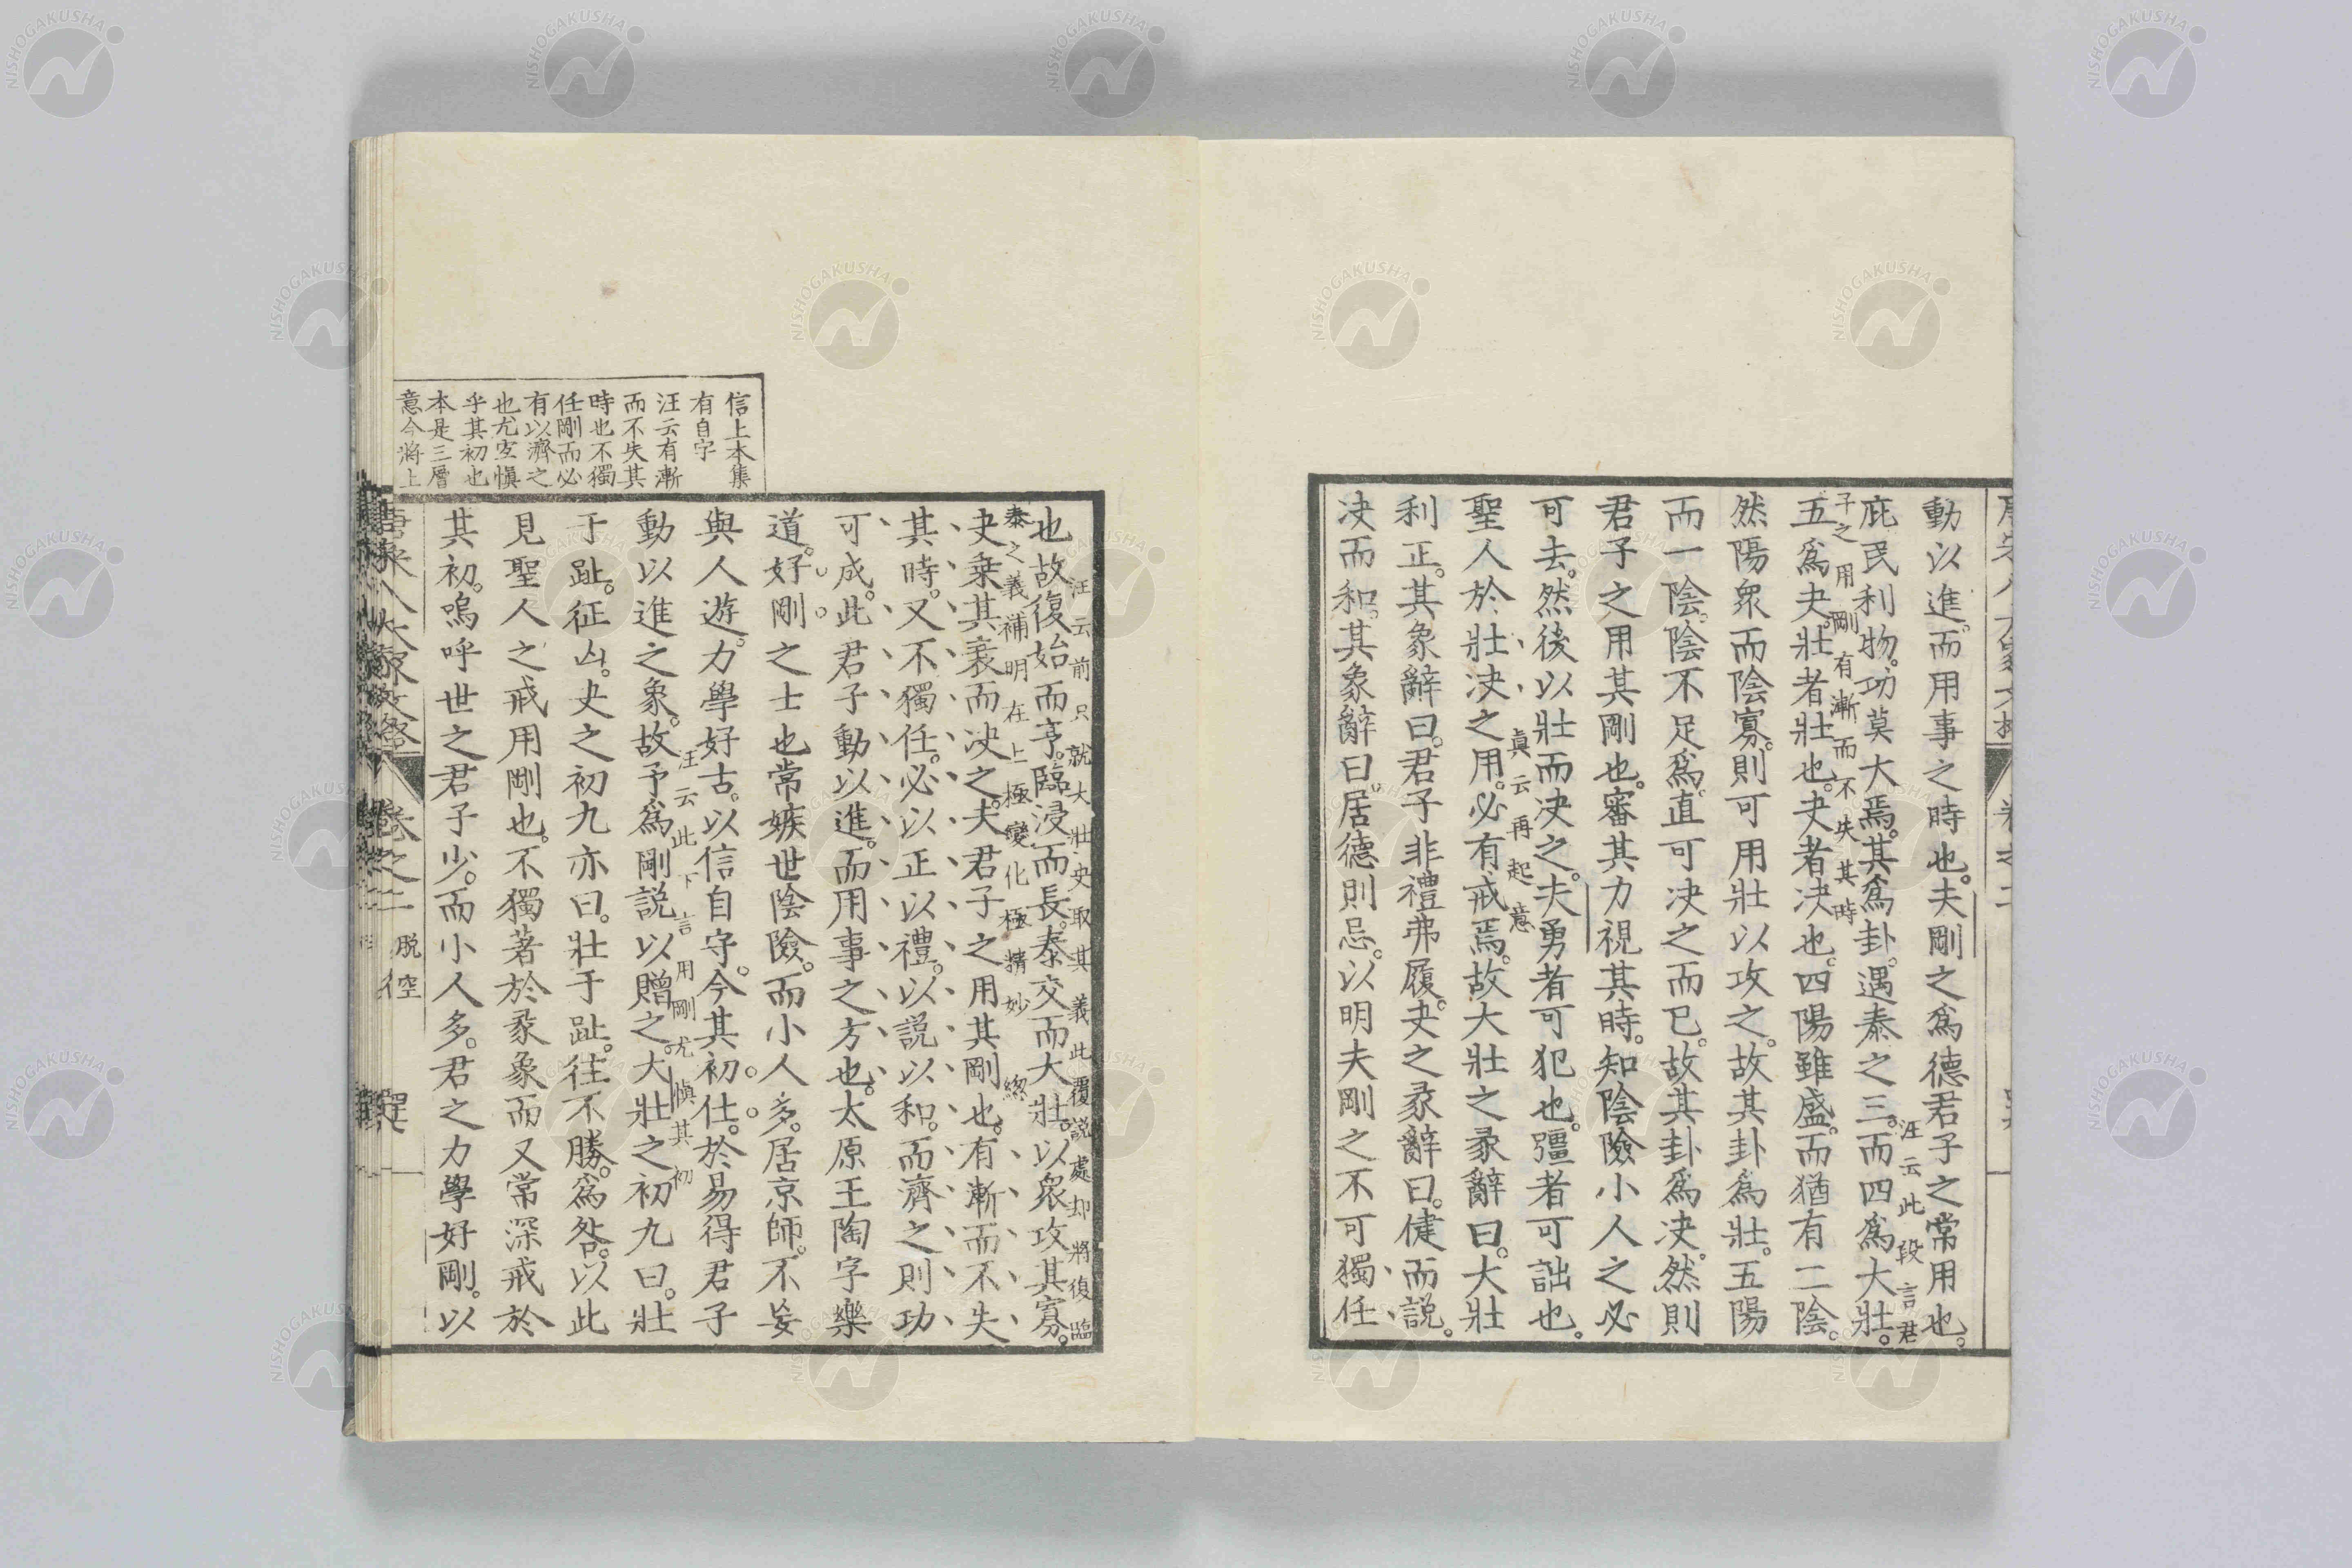 動以進。而用事之時也。夫剛之爲德君子之常用也。
汪云此段言君
庇民利物。功莫大焉。其爲卦。遇泰之三。而四爲大壯。
子之用剛有漸而不失其時
五爲夬。壯者壯也。夬者決也。四陽雖盛。而猶有二陰。
然陽衆而陰寡。則可用壯以攻之。故其卦爲壯。五陽
而一陰。陰不足爲。直可決之而已。故其卦爲決。然則
君子之用其剛也。審其力視其時。知陰險小人之必
可去。然後以壯而決之。夫勇者可犯也。彊者可詘也。
真云再起意
聖人於壯決之用。必有戒焉。故大壯之彖辭曰。大壯
利正。其象辭曰。君子非禮弗履。夬之彖辭曰。健而説。
決而和。其象辭曰。居德則忌。以明夫剛之不可獨任
汪云前只就大壯夬取其義此覆説處却將復臨
也故復始而亨。臨浸而長。泰交而大壯。以衆攻其寡。
泰之義補明在上極變化極精妙
夬乗其衰而決之。夫君子之用其剛也。有漸而不失
其時。又不獨任。必以正以禮。以説以和。而濟之則功
可成。此君子動以進。而用事之方也。太原王陶字樂
道。好剛之士也常嫉世陰險。而小人多。居京師。不妄
與人遊。力學好古。以信自守。今其初仕。於易得君子
汪云此下言用剛尤慎其初
動以進之象。故予爲剛説以贈之。大壯之初九曰。壯
于趾。征凶。夬之初九亦曰。壯于趾。往不勝。爲咎。以此
見聖人之戒用剛也。不獨著於彖象而又常深戒於
其初。嗚呼世之君子少。而小人多。君之力學好剛。以
卷之二 脱空
信上本集
有自字
汪云有漸
而不失其
時也不獨
任剛而必
有以濟之
也尤宜慎
乎其初也
本是三層
意今將上
NISHOGAKUSHA